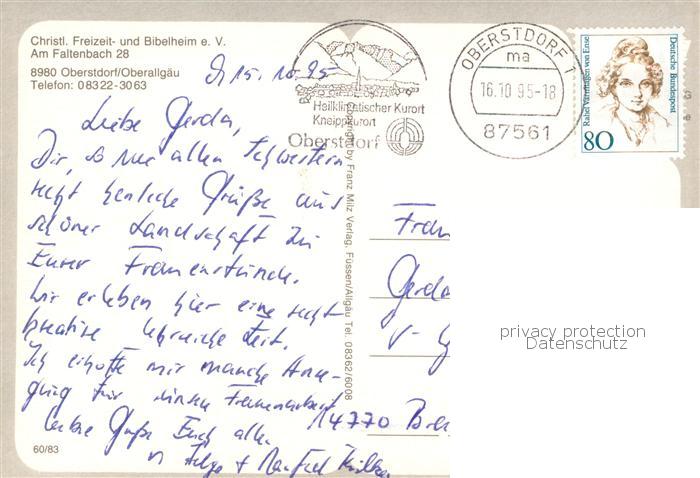 Christl. Freizeit- und Bibelheim e. V.
Am Faltenbach 28
8980 Oberstdorf/Oberallgäu
Telefon: 08322-3063
15. 10. 95
Liebe Gerda,
Dir, so wie allen Schwestern
recht herzliche Grüße aus
schöner Landschaft zu
Eurer Frauenstunde.
Wir erleben hier eine recht
kreative lehrreiche Zeit.
Ich erhoffe mir manche Anre-
gung für
Grüße Euch allen
Helga + Manfred
60/83
Heilklimatischer Kurort
Kneippkurort
Oberstdorf
OBERSTDORF 1
ma
16.10.95-18
87561
Rahel Varnhagen von Ense
Deutsche Bundespost
80
Copyright by Franz Milz Verlag, Füssen/Allgäu Tel. 08362/6008
Frau
Gerda
14770 Bra
privacy protection
Datenschutz